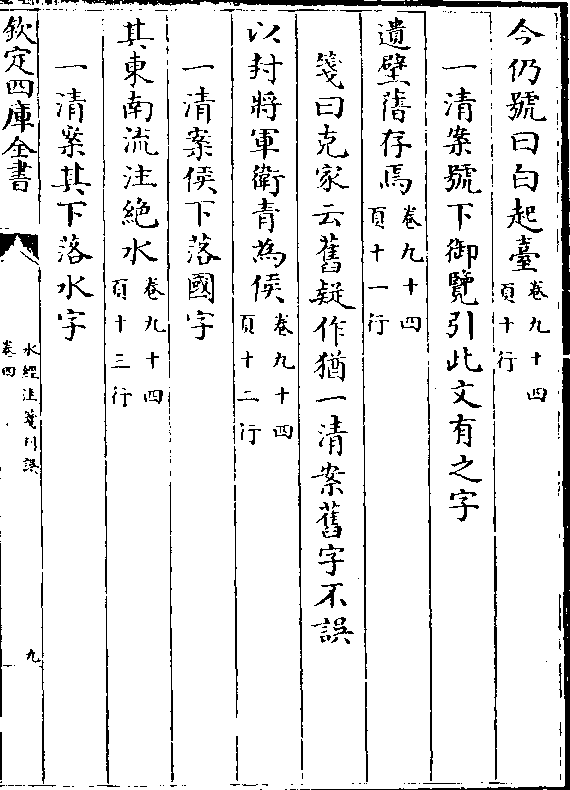 今仍號曰白起臺卷九十四頁十行
一清案號下御覽引此文有之字
遺壁舊存焉卷九十四頁十一行
箋曰克家云舊疑作猶一清案舊字不誤
以封將軍衛青為侯卷九十四頁十二行
一清案侯下落國字
其東南流注絶水卷九十四頁十三行
一清案其下落水字
欽定四庫全書
水經注箋刊誤
卷四
九